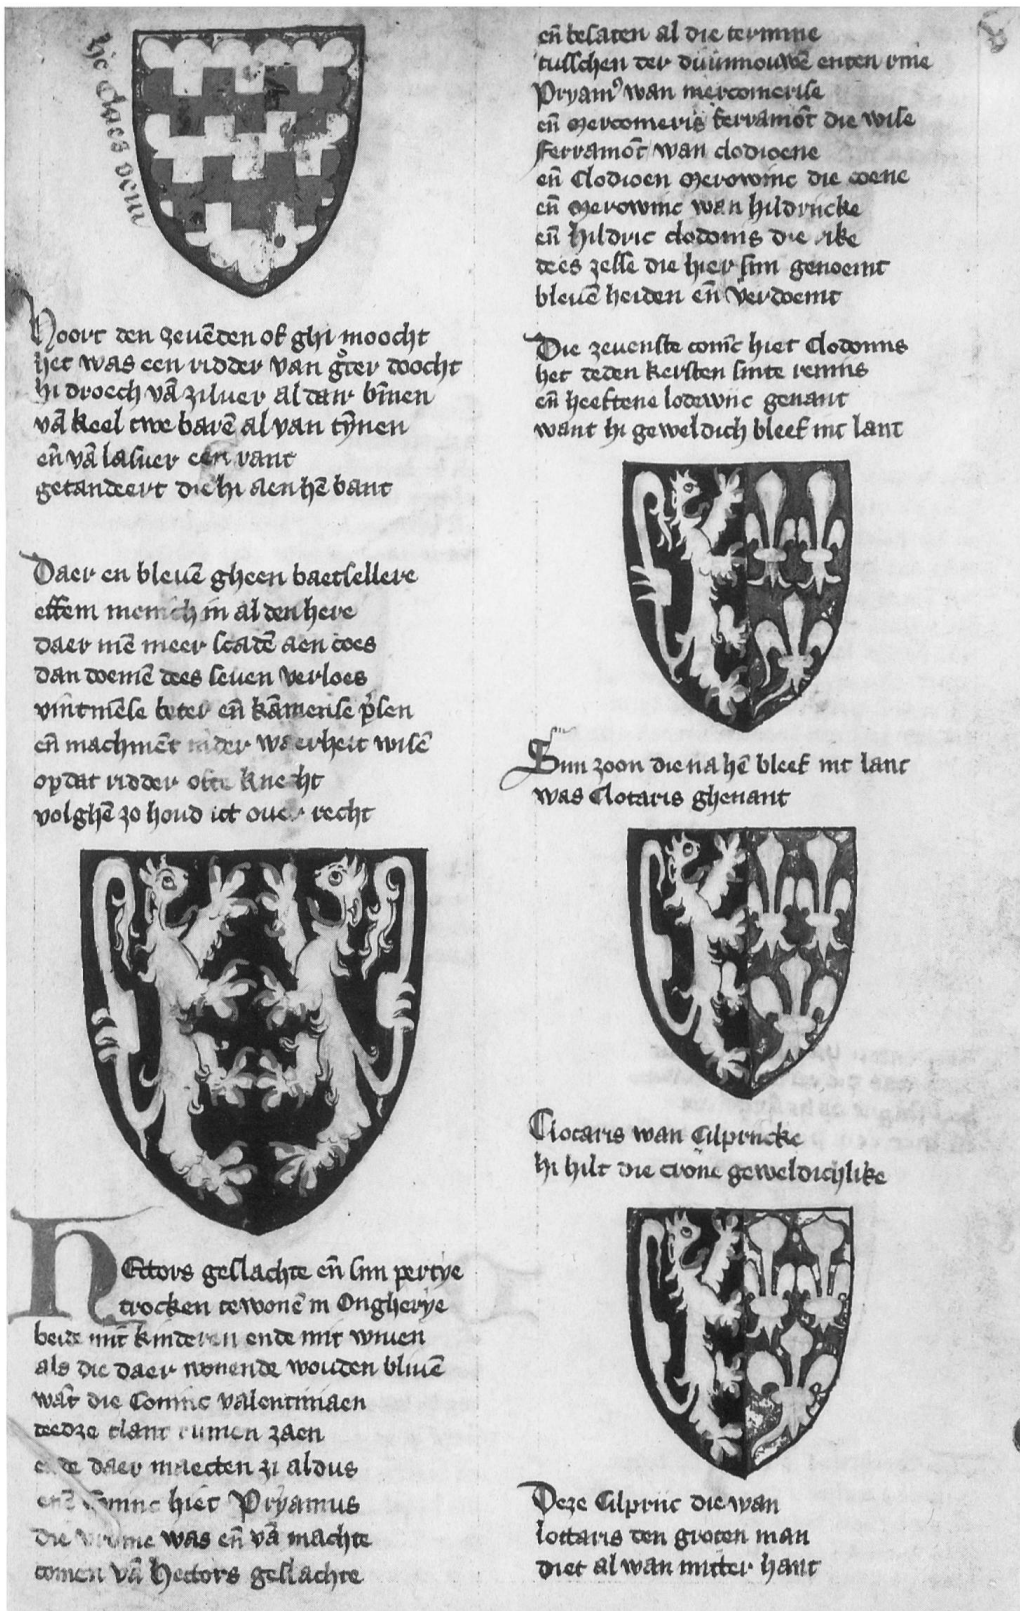 hē claes vem
Hoort den zeuēden of ghi moocht
het was een ridder van g̊ter doocht
hi droech vā ziluer al dair bīnen
vā keel twe barē al van tȳnen
eñ vā lasuer een rant
getandeert die hi aen hē bant
Daer en bleuē gheen baetsellere
effem menich in al den here
daer mē meer scadē aen coes
dan doemē dees seuen verloes
vintmēse beter eñ kāmense p̄sen
eñ machmēt in der waerheit wisē
op dat ridder ofte knecht
volghē zo houd ict ouer recht
Hectors geslachte eñ sijn pertye
trocken te wonē in Ongherye
beide mit kinderen ende mit wiuen
als die daer wonende wouden bliuē
wāt die Coninc valentiniaen
deedze tlant rumen zaen
ende daer maecten zi aldus
enē Coninc hiet Pryamus
die vrome was eñ vā machte
comen vā Hectors geslachte
eñ besaten al die termine
tusschen der duunouwē enten rine
Pryam⁹ wan mercomerise
eñ Mercomeris ferramōt die wise
Ferramōt wan clodioene
eñ Clodioen Merowinc die coene
eñ Merowinc wan hildricke
eñ hildric clodouis die rike
dees zesse die hier sijn genoemt
bleuē heiden eñ verdoemt
Die zeuenste conīc hiet Clodouis
het deden kersten sinte remijs
eñ heeftene lodewijc genant
want hi geweldich bleef int lant
Sijn zoon die na hē bleef int lant
was Clotaris ghenant
Clotaris wan Cilpricke
hi hilt die crone geweldichlike
Deze Cilpric die wan
lottaris den groten man
diet al wan mitter hant